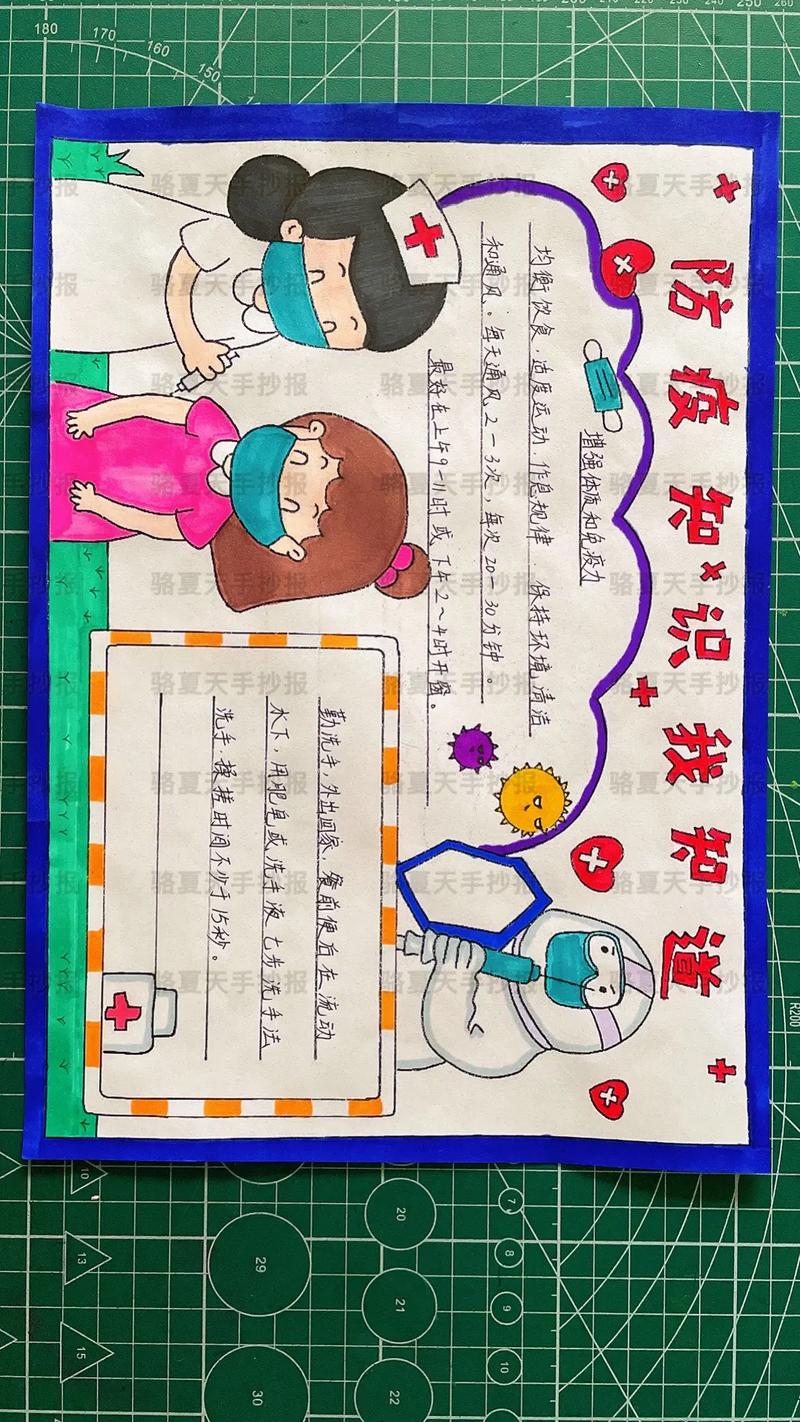 防疫知识我知道
增强体质和免疫力
均衡饮食.适度运动.作息规律 保持环境清洁
和通风。每天通风2-3次,每次20-30分钟。
最好在上午9-11时或下午2~4时开窗。
勤洗手,外出回家,餐前便后在流动
水下,用肥皂或洗手液七步洗手法
洗手,揉搓时间不少于15秒。
骆夏天手抄报
180
170
160
150
R200
10
13
15
29
30
20
21
22
7
8
9
10